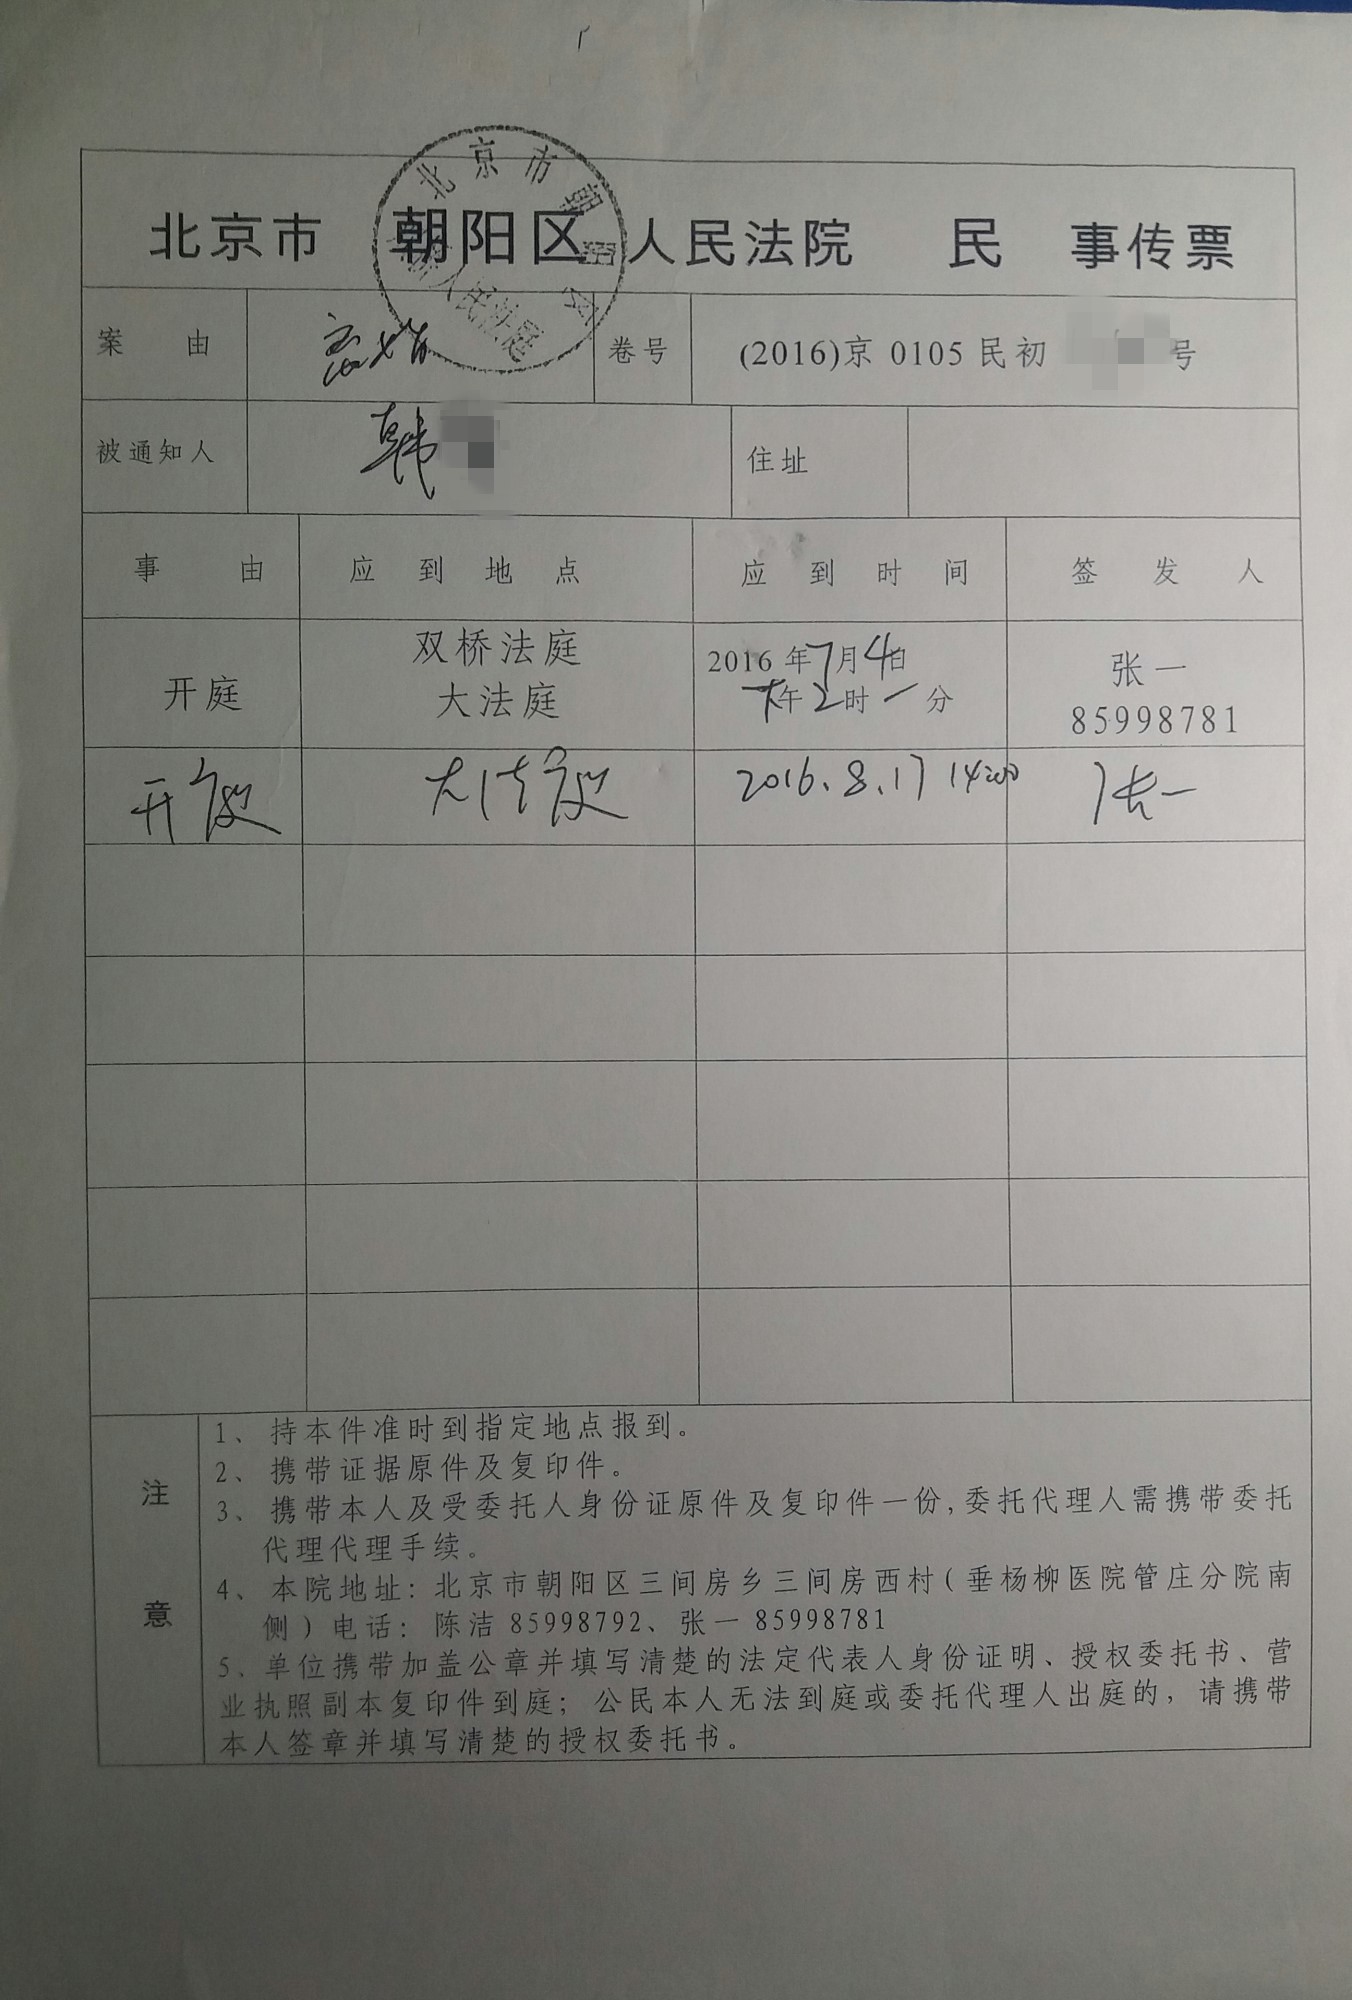 北京市 朝阳区 人民法院 民 事传票
案 由 离婚 卷号 (2016)京 0105 民初 号
被通知人 韩 住址
事 由 应 到 地 点 应 到 时 间 签 发 人
开庭 双桥法庭 大法庭 2016 年7月4日 下午2时 分 张一 85998781
开庭 大法庭 2016.8.17 14:00 张一
注意
1、持本件准时到指定地点报到。
2、携带证据原件及复印件。
3、携带本人及受委托人身份证原件及复印件一份,委托代理人需携带委托
代理代理手续。
4、本院地址:北京市朝阳区三间房乡三间房西村(垂杨柳医院管庄分院南
侧)电话:陈洁 85998792、张一 85998781
5、单位携带加盖公章并填写清楚的法定代表人身份证明、授权委托书、营
业执照副本复印件到庭;公民本人无法到庭或委托代理人出庭的,请携带
本人签章并填写清楚的授权委托书。